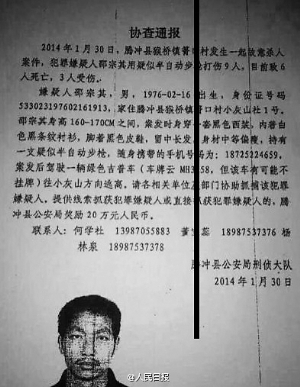 协查通报
2014年1月30日,腾冲县猴桥镇胆口村发生一起故意杀人
案件,犯罪嫌疑人邵宗其用疑似半自动步枪打伤9人,目前致6
人死亡,3人受伤。
嫌疑人邵宗其,男,1976-02-16出生,身份证号码
533023197602161913,家住腾冲县猴桥镇胆口村小灰山社1号。
邵宗其身高160-170CM之间,案发时身穿一套黑色西装,内着白
色黑条纹衬衫,脚着黑色皮鞋,留中长发,身材中等偏瘦,持有
一支疑似半自动步枪,随身携带的手机号码为:18725224659。
案发后驾驶一辆绿色吉普车(车牌云MH 58,但该车有可能不
挂牌)往小灰山方向逃离。请各相关单位 部门协助抓捕该犯罪
嫌疑人,提供线索抓获犯罪嫌疑人或直接抓获犯罪嫌疑人的,腾
冲县公安局奖励20万元人民币。
联系人:何学社 13987055883 董 蕊 18987537376 杨
林泉 18987537378
腾冲县公安局刑侦大队
2014年1月30日
@人民日报